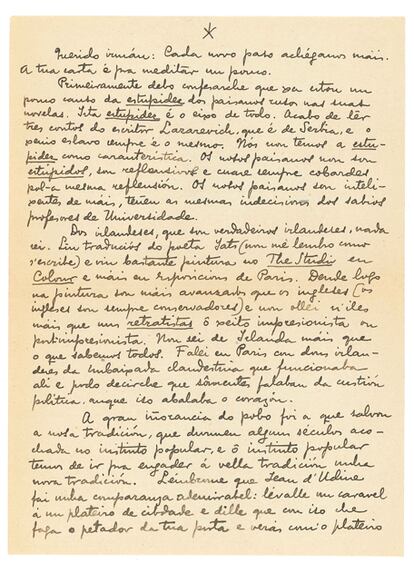 *
Querido irmán: Cada novo paso achéganos máis.
A tua carta é pra meditar un pouco.
Primeiramente debo confesarche que xa citou un
pouco canto da estupidez dos paisanos rusos nas suas
novelas. Ista estupidez é o eixo de todo. Acabo de lêr
tres contos do escritor Lazarevich, que é de Serbia, e o
xenio eslavo sempre é o mesmo. Nós non temos a estu-
pidez como caraiterística. Os nosos paisanos non son
estúpidos, son reflensivos e cuase sempre cobardes
pol-a mesma reflensión. Os nosos paisanos son inteli-
xentes de máis, teñen as mesmas indecisións dos sabios
profesores de Universidade.
Dos irlandeses, que son verdadeiros irlandeses, nada
sei. Lin traducións do poeta Yats (non me lembro como
s'escribe) e vin bastante pintura no The Studio en
Colour e máis en Esposicións de París. Dende logo
na pintura son máis avanzados que os ingleses (os
ingleses son sempre conservadores) e non ollei n'iles
máis que uns retratistas ó xeito impresionista ou
post-impresionista. Non sei de Irlanda máis que
o que sabemos todos. Falei en París con dous irlan-
deses da Embaixada clandestina que funcionaba
alí e podo decirche que sómentes falaban da custión
política, anque iso abalaba o corazón.
A gran iñorancia do pobo foi a que salvou
a nosa tradición, que durmeu algúns séculos aco-
chada no instinto popular, e ó instinto popular
temos de ir pra engader á vella tradición unha
nova tradición. Lémbrome que Jean d'Udine
fai unha comparanza ademirabel: lévalle un caravel
á un plateiro de cibdade e dille que con iso che
faga o petador da tua porta e verás com'o plateiro